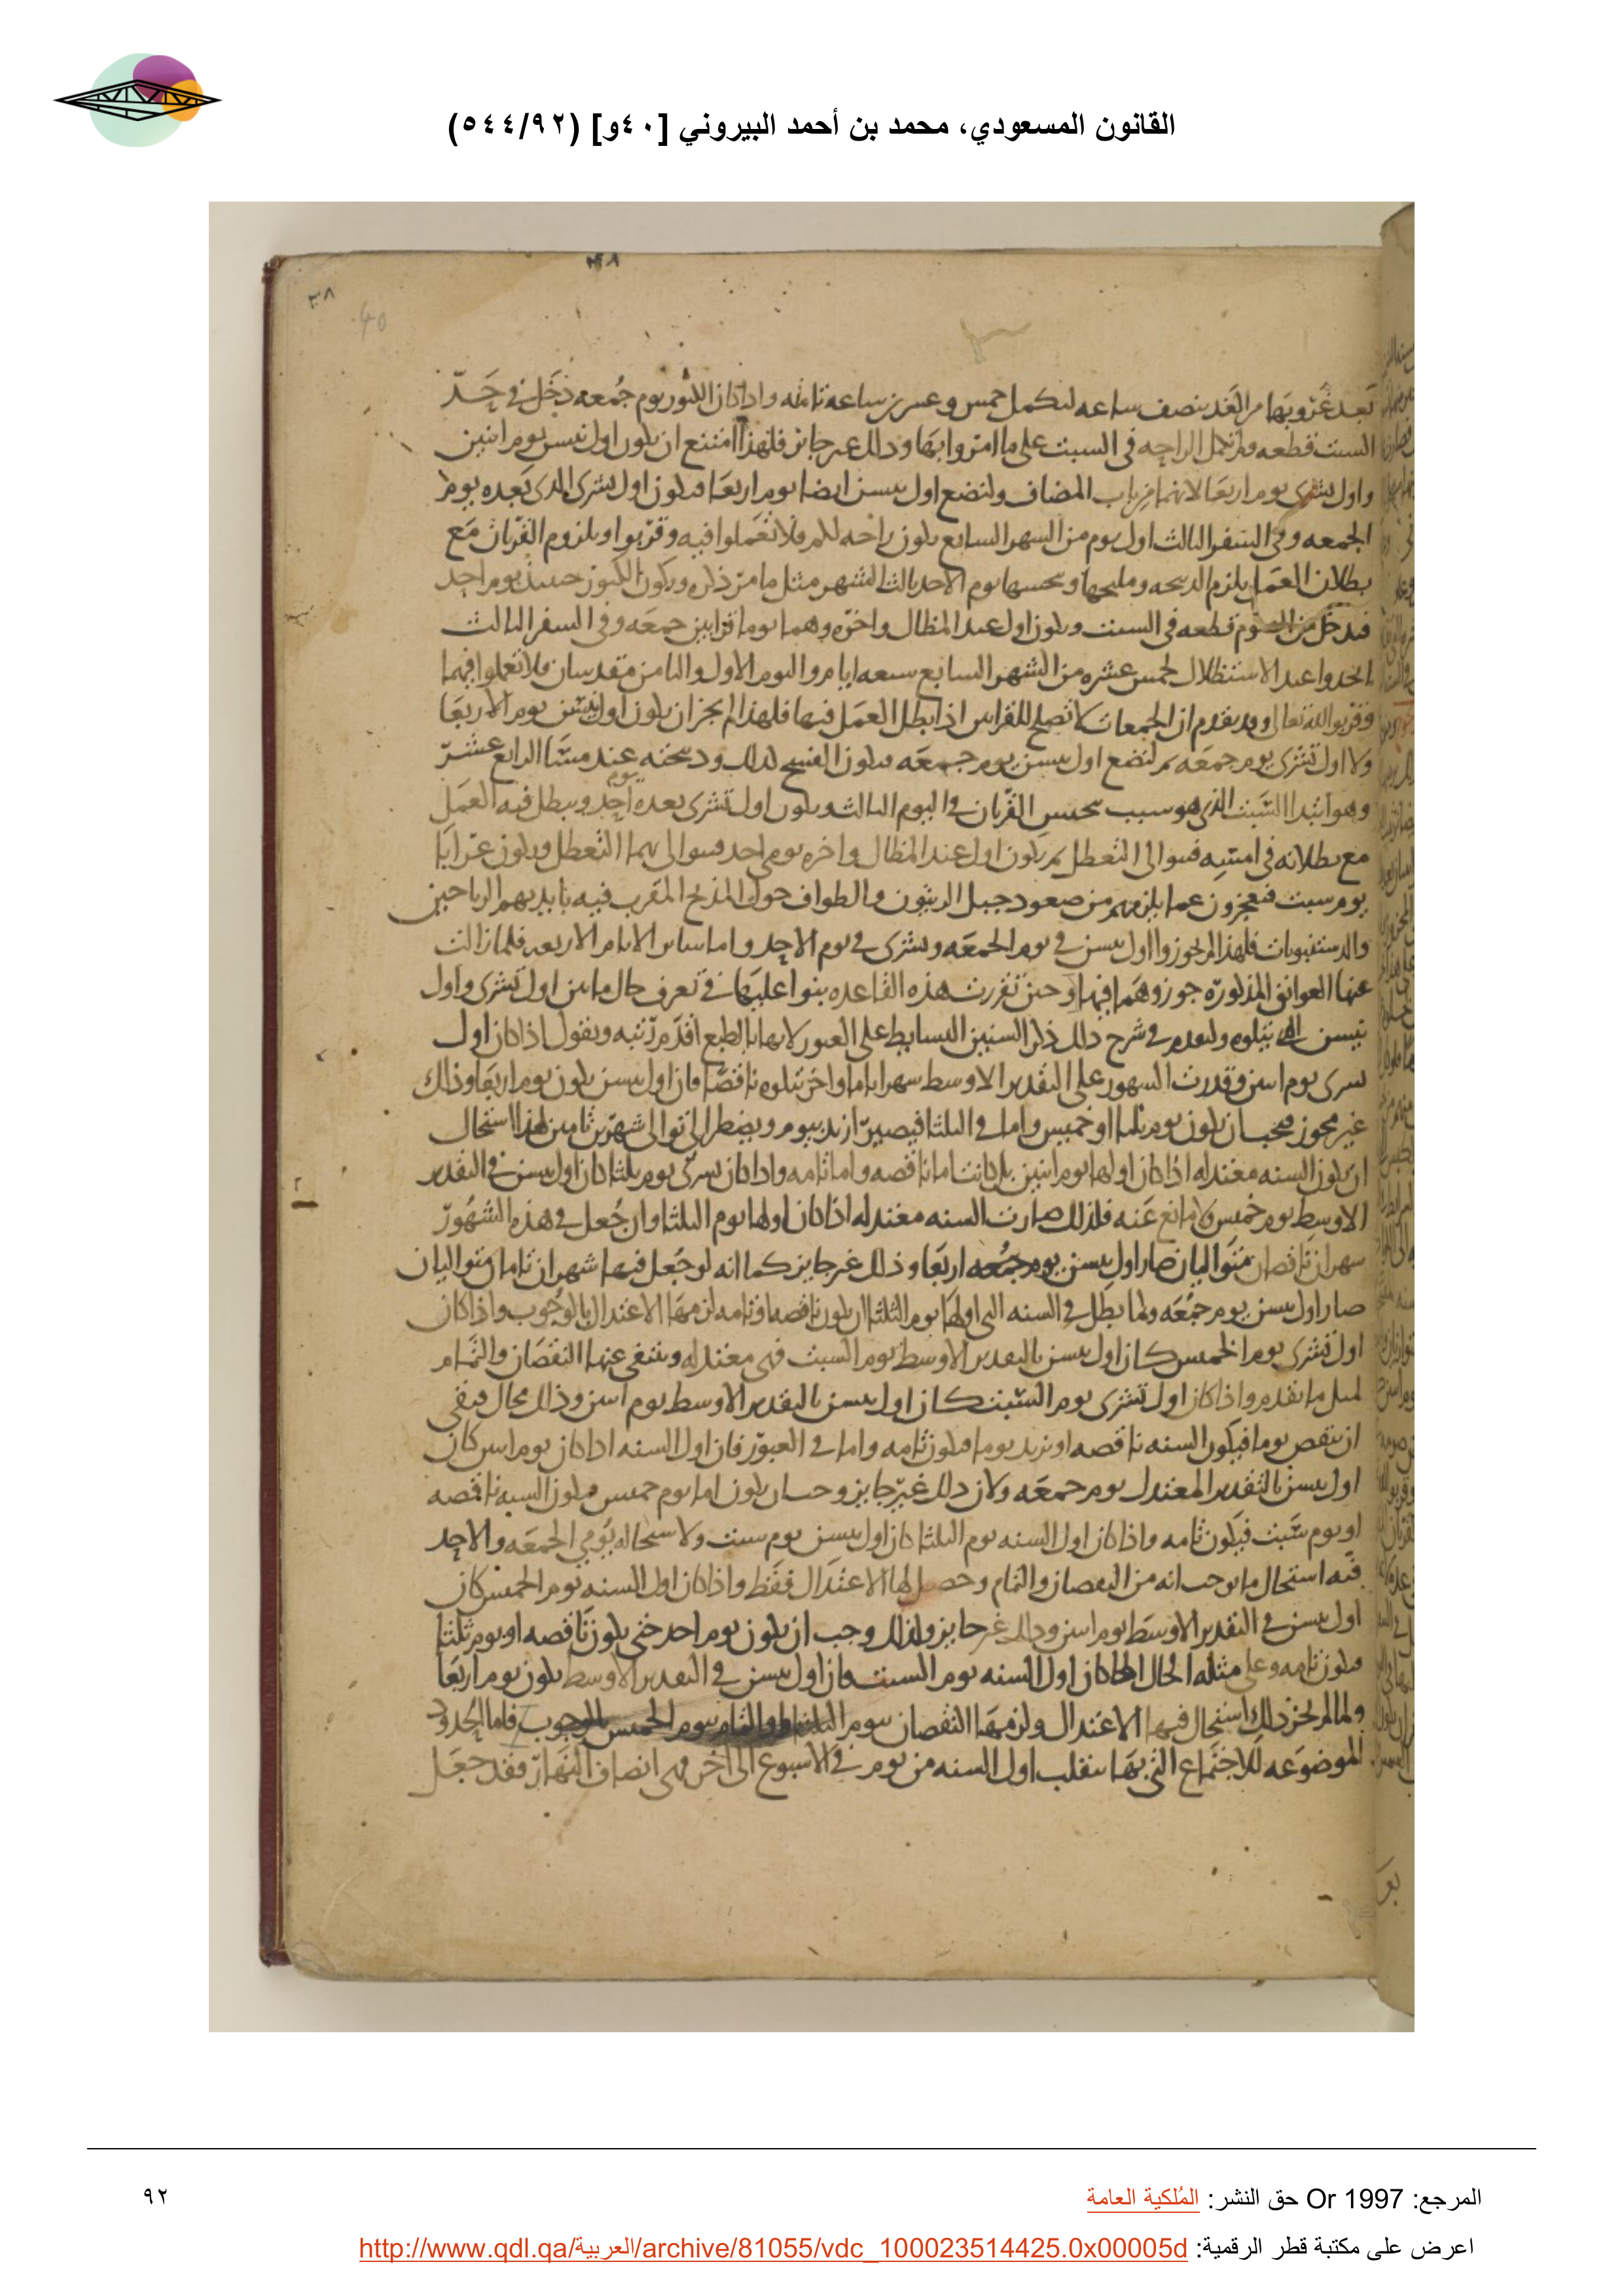 القانون المسعودي، محمد بن أحمد البيروني [٤٠و] (٥٤٤/٩٢)
٣٨
40
بعد غروبها من الغد بنصف ساعه لتكمل خمس وعشرين ساعه تامه واذا كان الكبور يوم جمعه دخل في حد
السبت قطعه ولم تكمل الراحه في السبت على ما امروا بها وذلك غير جايز فلهذا امتنع ان يكون اول نيسن يوم اثنين
واول تشرى يوم اربعا لانهما من باب المضاف ولنضع اول نيسن ايضا يوم اربعا فيكون اول تشرى الذى بعده يوم
الجمعه وفى السفر الثالث اول يوم من الشهر السابع يكون راحه لكم فلا تعملوا فيه وقربوا ويلزوم القربان مع
بطلان العمل يلزم الذبحه ومليحها وتحسها يوم الاحد ثالث الشهر مثل ما من ذكره ويكون الكبور حينئذ يوم احد
فيدخل من الصوم قطعه فى السبت ويكون اول عيد المظال واخره وهما يوما قرابين جمعه وفى السفر الثالث
اتخذوا عيد الاستظلال لخمس عشره من الشهر السابع سبعه ايام واليوم الاول والثامن مقدسان فلا تعملوا فيهما
وقربوا لله تعالى وقد تقدم ان الجمعات لا تصلح للقرابين اذا بطل العمل فيها فلهذا لم يجز ان يكون اول نيسن يوم الاربعا
ولا اول تشرى يوم جمعه ثم لنضع اول نيسن يوم جمعه فيكون الفسح لذلك وذبحته عند مشا الرابع عشر
وهو ابتدا السبت الذى هو سبب تحبس القربان فى اليوم الثالث ويكون اول تشرى بعده يوم احد ويبطل فيه العمل
مع بطلانه فى امسه فتتوالى التعطل ثم يكون اول عيد المظال واخره يومى احد فتتوالى بهما التعطل ويكون عرابا
يوم سبت فيعجزون عما يلزمهم من صعود جبل الزيتون والطواف حول المذبح المقرب فيه بايديهم الرياحين
والدستنبويات فلهذا لم يجوزوا اول نيسن فى يوم الجمعه وتشرى فى يوم الاحد واما ساير الايام الاربعه فلما زالت
عنها العوايق المذكوره جوزوهما فيها وحين تقررت هذه القاعده بنوا عليها فى تعرف حال ما بين اول تشرى واول
نيسن الذى يتلوه ولنقدم فى شرح ذلك ذكر السنين البسايط على العبور لانها بالطبع اقدم رتبه ونقول اذا كان اول
تشرى يوم اثنين وقدرت الشهور على التقدير الاوسط شهرا تاما واخر يتلوه ناقصا فان اول نيسن يكون يوم اربعا وذلك
غير مجوز فيجب ان يكون يوم ثلثا او خميس واما فى الثلثا فيصير ازيد بيوم ويضطر الى توالى شهرين تامين لهذا استحال
ان يكون السنه معتدله اذا كان اولها يوم اثنين بل كانت اما ناقصه واما تامه واذا كان تشرى يوم ثلثا كان اول نيسن فى التقدير
الاوسط يوم خميس ولا مانع عنه فلذلك صارت السنه معتدله اذا كان اولها يوم الثلثا وان جعل فى هذه الشهور
شهران ناقصان متواليان صار اول نيسن يوم جمعه اربعا وذلك غير جايز كما انه لو جعل فيها شهران تامان متواليان
صار اول نيسن يوم جمعه ولما بطل فى السنه التى اولها يوم الثلثا ان يكون ناقصه او تامه لزمها الاعتدال بالوجوب واذا كان
اول تشرى يوم الخميس كان اول نيسن بالتقدير الاوسط يوم السبت فهى معتدله وينتفى عنها النقصان والتمام
لمثل ما تقدم واذا كان اول تشرى يوم السبت كان اول نيسن بالتقدير الاوسط يوم اثنين وذلك محال فبقى
ان ينقص يوما فيكون السنه ناقصه او نزيد يوما فيكون تامه واما فى العبور فان اول السنه اذا كان يوم اثنين كان
اول نيسن بالتقدير المعتدل يوم جمعه ولان ذلك غير جايز وجب ان يكون اما يوم خميس فيكون السنه ناقصه
او يوم سبت فيكون تامه واذا كان اول السنه يوم الثلثا كان اول نيسن يوم سبت ولاستحاله يومى الجمعه والاحد
فيه استحال ما يوجبانه من النقصان والتمام وحصل لها الاعتدال فقط واذا كان اول السنه يوم الخميس كان
اول نيسن فى التقدير الاوسط يوم اثنين وذلك غير جايز ولذلك وجب ان يكون يوم احد حتى يكون ناقصه او يوم ثلثا
فيكون تامه وعلى مثله الحال اذا كان اول السنه يوم السبت فان اول نيسن فى التقدير الاوسط يكون يوم اربعا
ولما لم يجز ذلك استحال فيها الاعتدال ولزمها النقصان بيوم الثلثا والتمام بيوم الخميس بالوجوب فاما الحدود
الموضوعه للاجتماع التى بها ينقلب اول السنه من يوم فى الاسبوع الى اخر فهى انصاف النهار فقد جعل
المرجع: Or 1997 حق النشر: المُلكية العامة
٩٢
اعرض على مكتبة قطر الرقمية: http://www.qdl.qa/العربية/archive/81055/vdc_100023514425.0x00005d